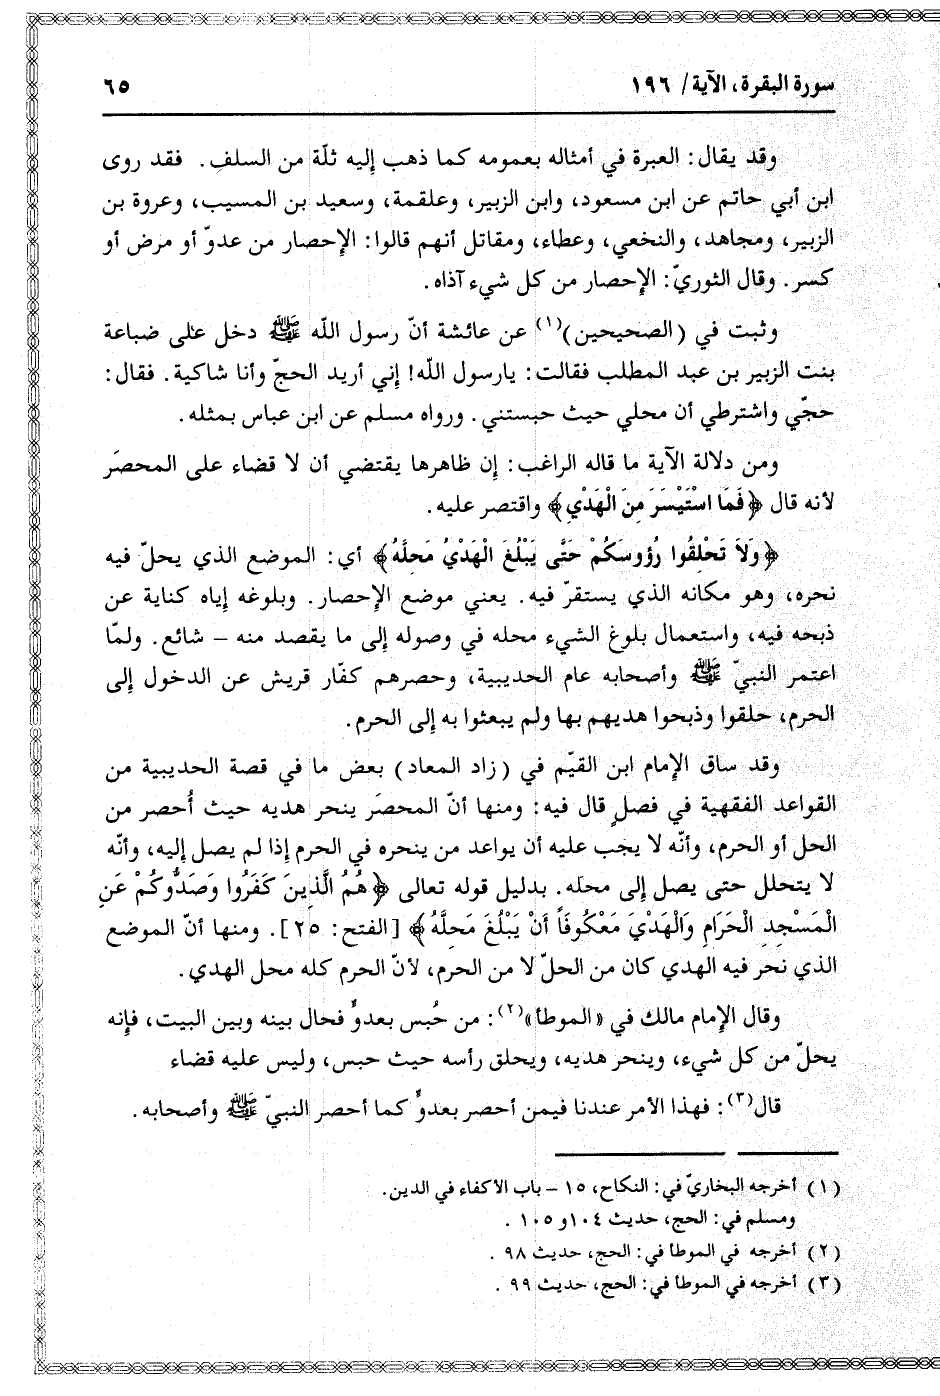 سورة البقرة، الآية/ ١٩٦
٦٥
وقد يقال: العبرة في أمثاله بعمومه كما ذهب إليه ثلّة من السلفِ. فقد روى
ابن أبي حاتم عن ابن مسعود، وابن الزبير، وعلقمة، وسعيد بن المسيب، وعروة بن
الزبير، ومجاهد، والنخعي، وعطاء، ومقاتل أنهم قالوا: الإحصار من عدوّ أو مرض أو
كسر. وقال الثوريّ: الإحصار من كل شيء آذاه.
وثبت في (الصحيحين)(١) عن عائشة أنّ رسول اللّه ﷺ دخل على ضباعة
بنت الزبير بن عبد المطلب فقالت: يارسول اللّه! إني أريد الحجّ وأنا شاكية. فقال:
حجّي واشترطي أن محلي حيث حبستني. ورواه مسلم عن ابن عباس بمثله.
ومن دلالة الآية ما قاله الراغب: إن ظاهرها يقتضي أن لا قضاء على المحصَر
لأنه قال ﴿فَمَا اسْتَيْسَرَ مِنَ الْهَدْيِ﴾ واقتصر عليه.
﴿وَلاَ تَحْلِقُوا رُؤوسَكُمْ حَتَّى يَبْلُغَ الْهَدْيُ مَحِلَّهُ﴾ أي: الموضع الذي يحلّ فيه
نحره، وهو مكانه الذي يستقرّ فيه. يعني موضع الإحصار. وبلوغه إياه كناية عن
ذبحه فيه، واستعمال بلوغ الشيء محله في وصوله إلى ما يقصد منه - شائع. ولمّا
اعتمر النبيّ ﷺ وأصحابه عام الحديبية، وحصرهم كفّار قريش عن الدخول إلى
الحرم، حلقوا وذبحوا هديهم بها ولم يبعثوا به إلى الحرم.
وقد ساق الإمام ابن القيّم في (زاد المعاد) بعض ما في قصة الحديبية من
القواعد الفقهية في فصلٍ قال فيه: ومنها أنّ المحصَر ينحر هديه حيث أُحصر من
الحل أو الحرم، وأنّه لا يجب عليه أن يواعد من ينحره في الحرم إذا لم يصل إليه، وأنّه
لا يتحلل حتى يصل إلى محله. بدليل قوله تعالى ﴿هُمُ الَّذِينَ كَفَرُوا وَصَدُّوكُمْ عَنِ
الْمَسْجِدِ الْحَرَامِ وَالْهَدْيَ مَعْكُوفاً أَنْ يَبْلُغَ مَحِلَّهُ﴾ [الفتح: ٢٥]. ومنها أنّ الموضع
الذي نحر فيه الهدي كان من الحلّ لا من الحرم، لأنّ الحرم كله محل الهدي.
وقال الإمام مالك في «الموطأ»(٢): من حُبس بعدوٍّ فحال بينه وبين البيت، فإنه
يحلّ من كل شيء، وينحر هديه، ويحلق رأسه حيث حبس، وليس عليه قضاء
قال(٣): فهذا الأمر عندنا فيمن أحصر بعدوٍّ كما أحصر النبيّ ﷺ وأصحابه.
(١) أخرجه البخاريّ في: النكاح، ١٥ - باب الأكفاء في الدين.
ومسلم في: الحج، حديث ١٠٤ و ١٠٥ .
(٢) أخرجه في الموطأ في: الحج، حديث ٩٨ .
(٣) أخرجه في الموطأ في: الحج، حديث ٩٩ .